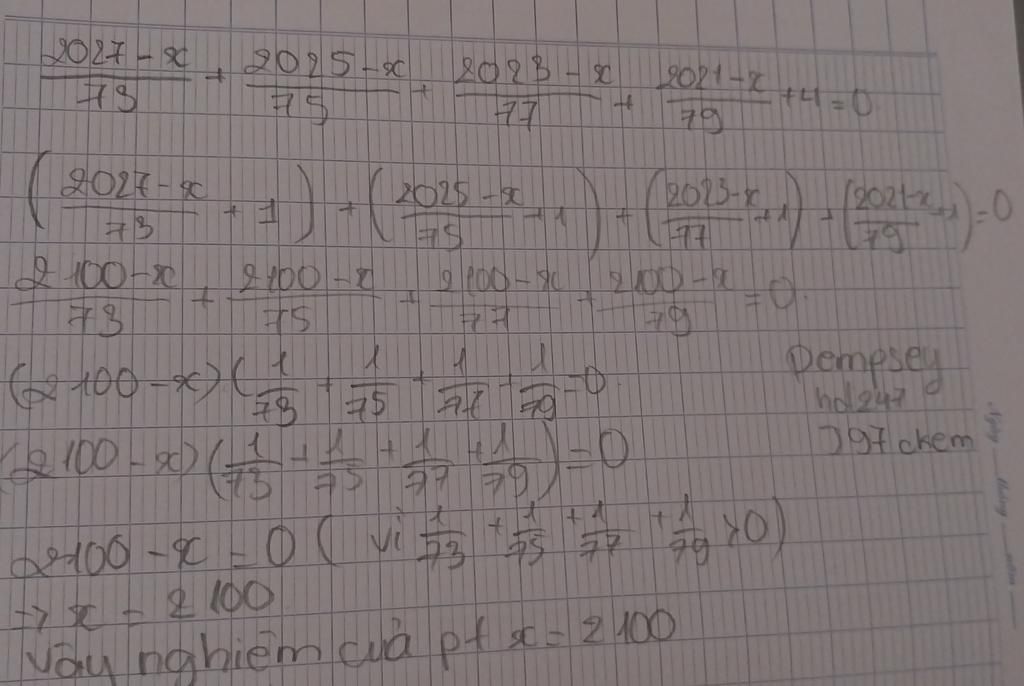 (2027-x)/73 + (2025-x)/75 + (2023-x)/77 + (2021-x)/79 + 4 = 0
((2027-x)/73 + 1) + ((2025-x)/75 + 1) + ((2023-x)/77 + 1) + ((2021-x)/79 + 1) = 0
(2100-x)/73 + (2100-x)/75 + (2100-x)/77 + (2100-x)/79 = 0
(2100-x)(1/73 + 1/75 + 1/77 + 1/79 = 0
Dempsey
hd247
J97chem
(2100-x)(1/73 + 1/75 + 1/77 + 1/79) = 0
2100-x = 0 ( vì 1/73 + 1/75 + 1/77 + 1/79 > 0)
=> x = 2100
Vậy nghiệm của pt x = 2100